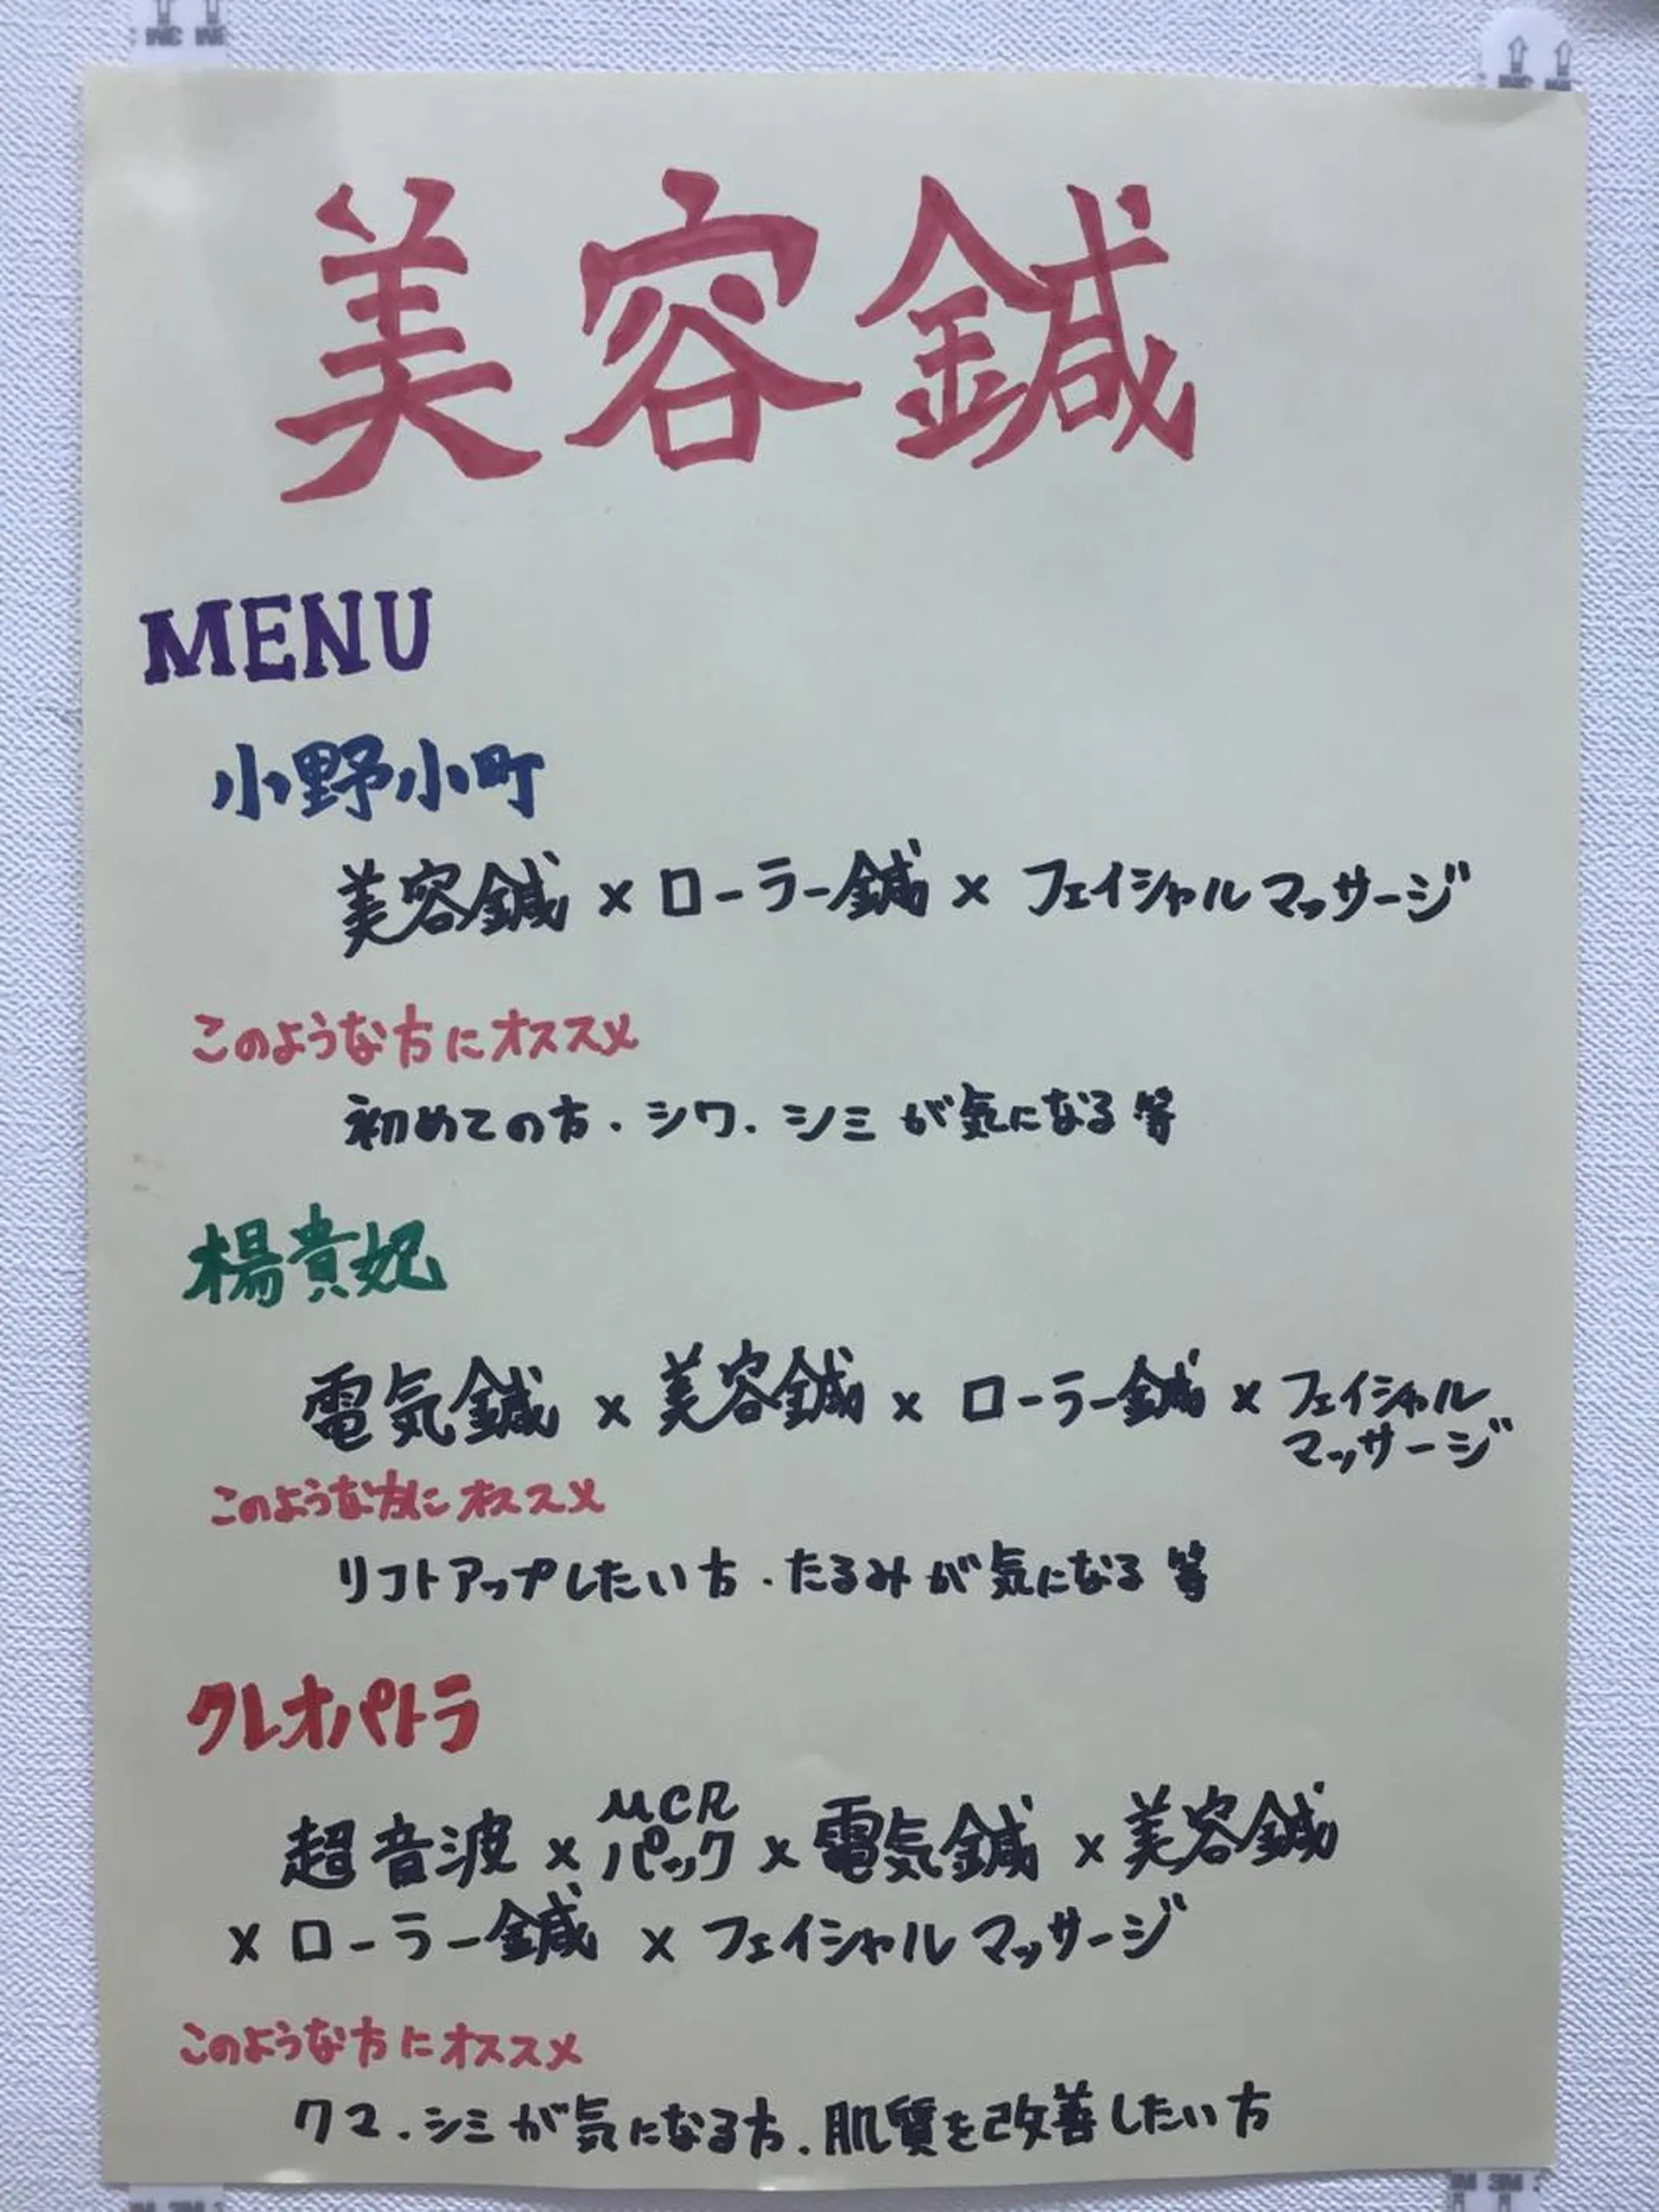 美容鍼
MENU
小野小町
美容鍼 × ローラー鍼 × フェイシャルマッサージ
このような方にオススメ
初めての方・シワ・シミが気になる等
楊貴妃
電気鍼 × 美容鍼 × ローラー鍼 × フェイシャル
マッサージ
このような方にオススメ
リフトアップしたい方・たるみが気になる等
クレオパトラ
超音波 × MCR
パック × 電気鍼 × 美容鍼
× ローラー鍼 × フェイシャルマッサージ
このような方にオススメ
クマ・シミが気になる方・肌質を改善したい方